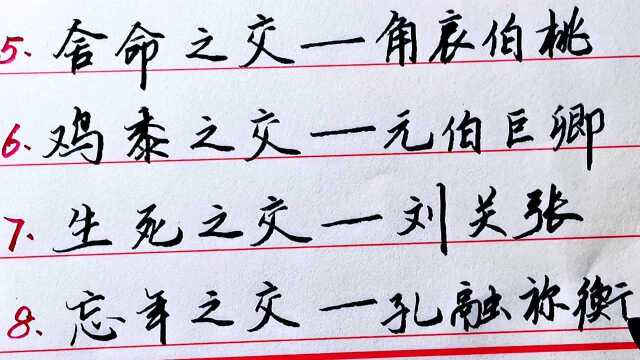 5. 舍命之交一角哀伯桃
6. 鸡黍之交一元伯巨卿
7. 生死之交一刘关张
8. 忘年之交一孔融祢衡